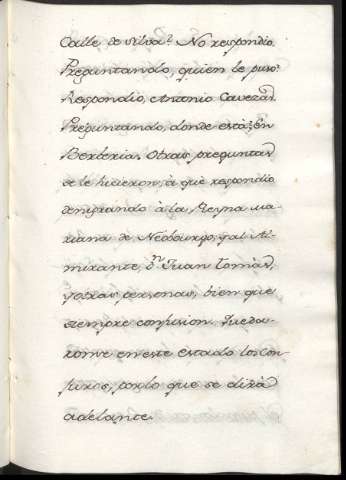 Calle de Silva? No respondio.
Preguntando, quien le puso?
Respondio, Antonio Cavezas.
Preguntando, donde està? En
Berberia. Otras preguntas
se le hicieron, à que respondio
denigrando à la Reyna Ma-
riana de Neobourgo, y al Al-
mirante, Dn Juan Tomàs,
y otras personas, bien que
siempre confusion. Queda-
ronse en este estado los Con-
juros, por lo que se dirà
adelante.